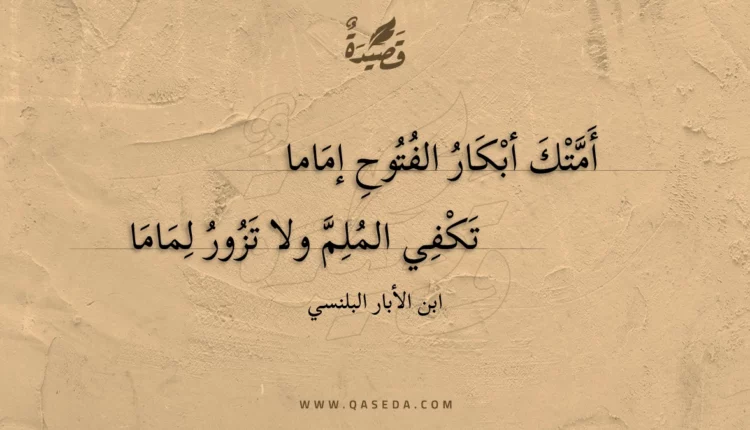 قَصِيْدَةٌ
أَمَّتْكَ أبْكَارُ الفُتُوحِ إمَاما
تَكْفِي المُلِمَّ ولا تَزُورُ لِمَامَا
ابن الأبار البلنسي
WWW.QASEDA.COM